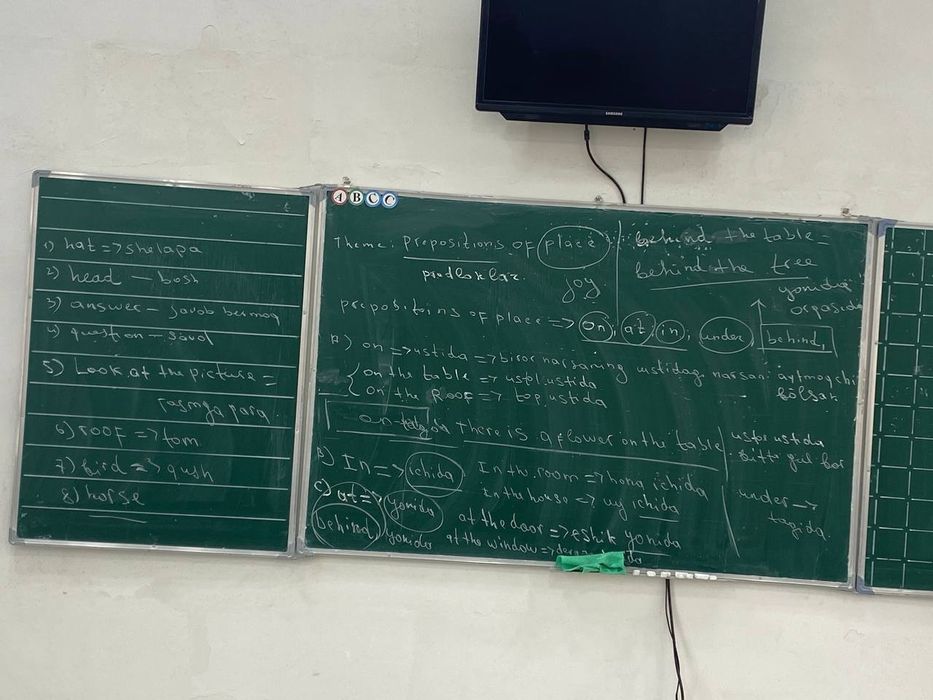 SAMSUNG
1) hat => shelapa
2) head – bosh
3) answer – javob bermoq
4) question – savol
5) Look at the picture =
rasmga para
6) roof => tom
7) bird => qush
8) horse
A B C C
Theme: Prepositions of place
predloklar
joy
prepositoins of place => on, at, in, under, behind,
A) on => ustida => biror narsaning ustidagi narsani aytmoqchi
bo'lsak
on the table => ustida
on the ROOF => ustida
on
There is a flower on the table
ustida
bitta gul bor
B) In => ichida
In the room => hona ichida
in the house => uy ichida
C) at => yonida
at the door => eshik yonida
behind, yonida
at the window =>
behind the table =
behind the tree
yonida
orqasida
under =>
tagida